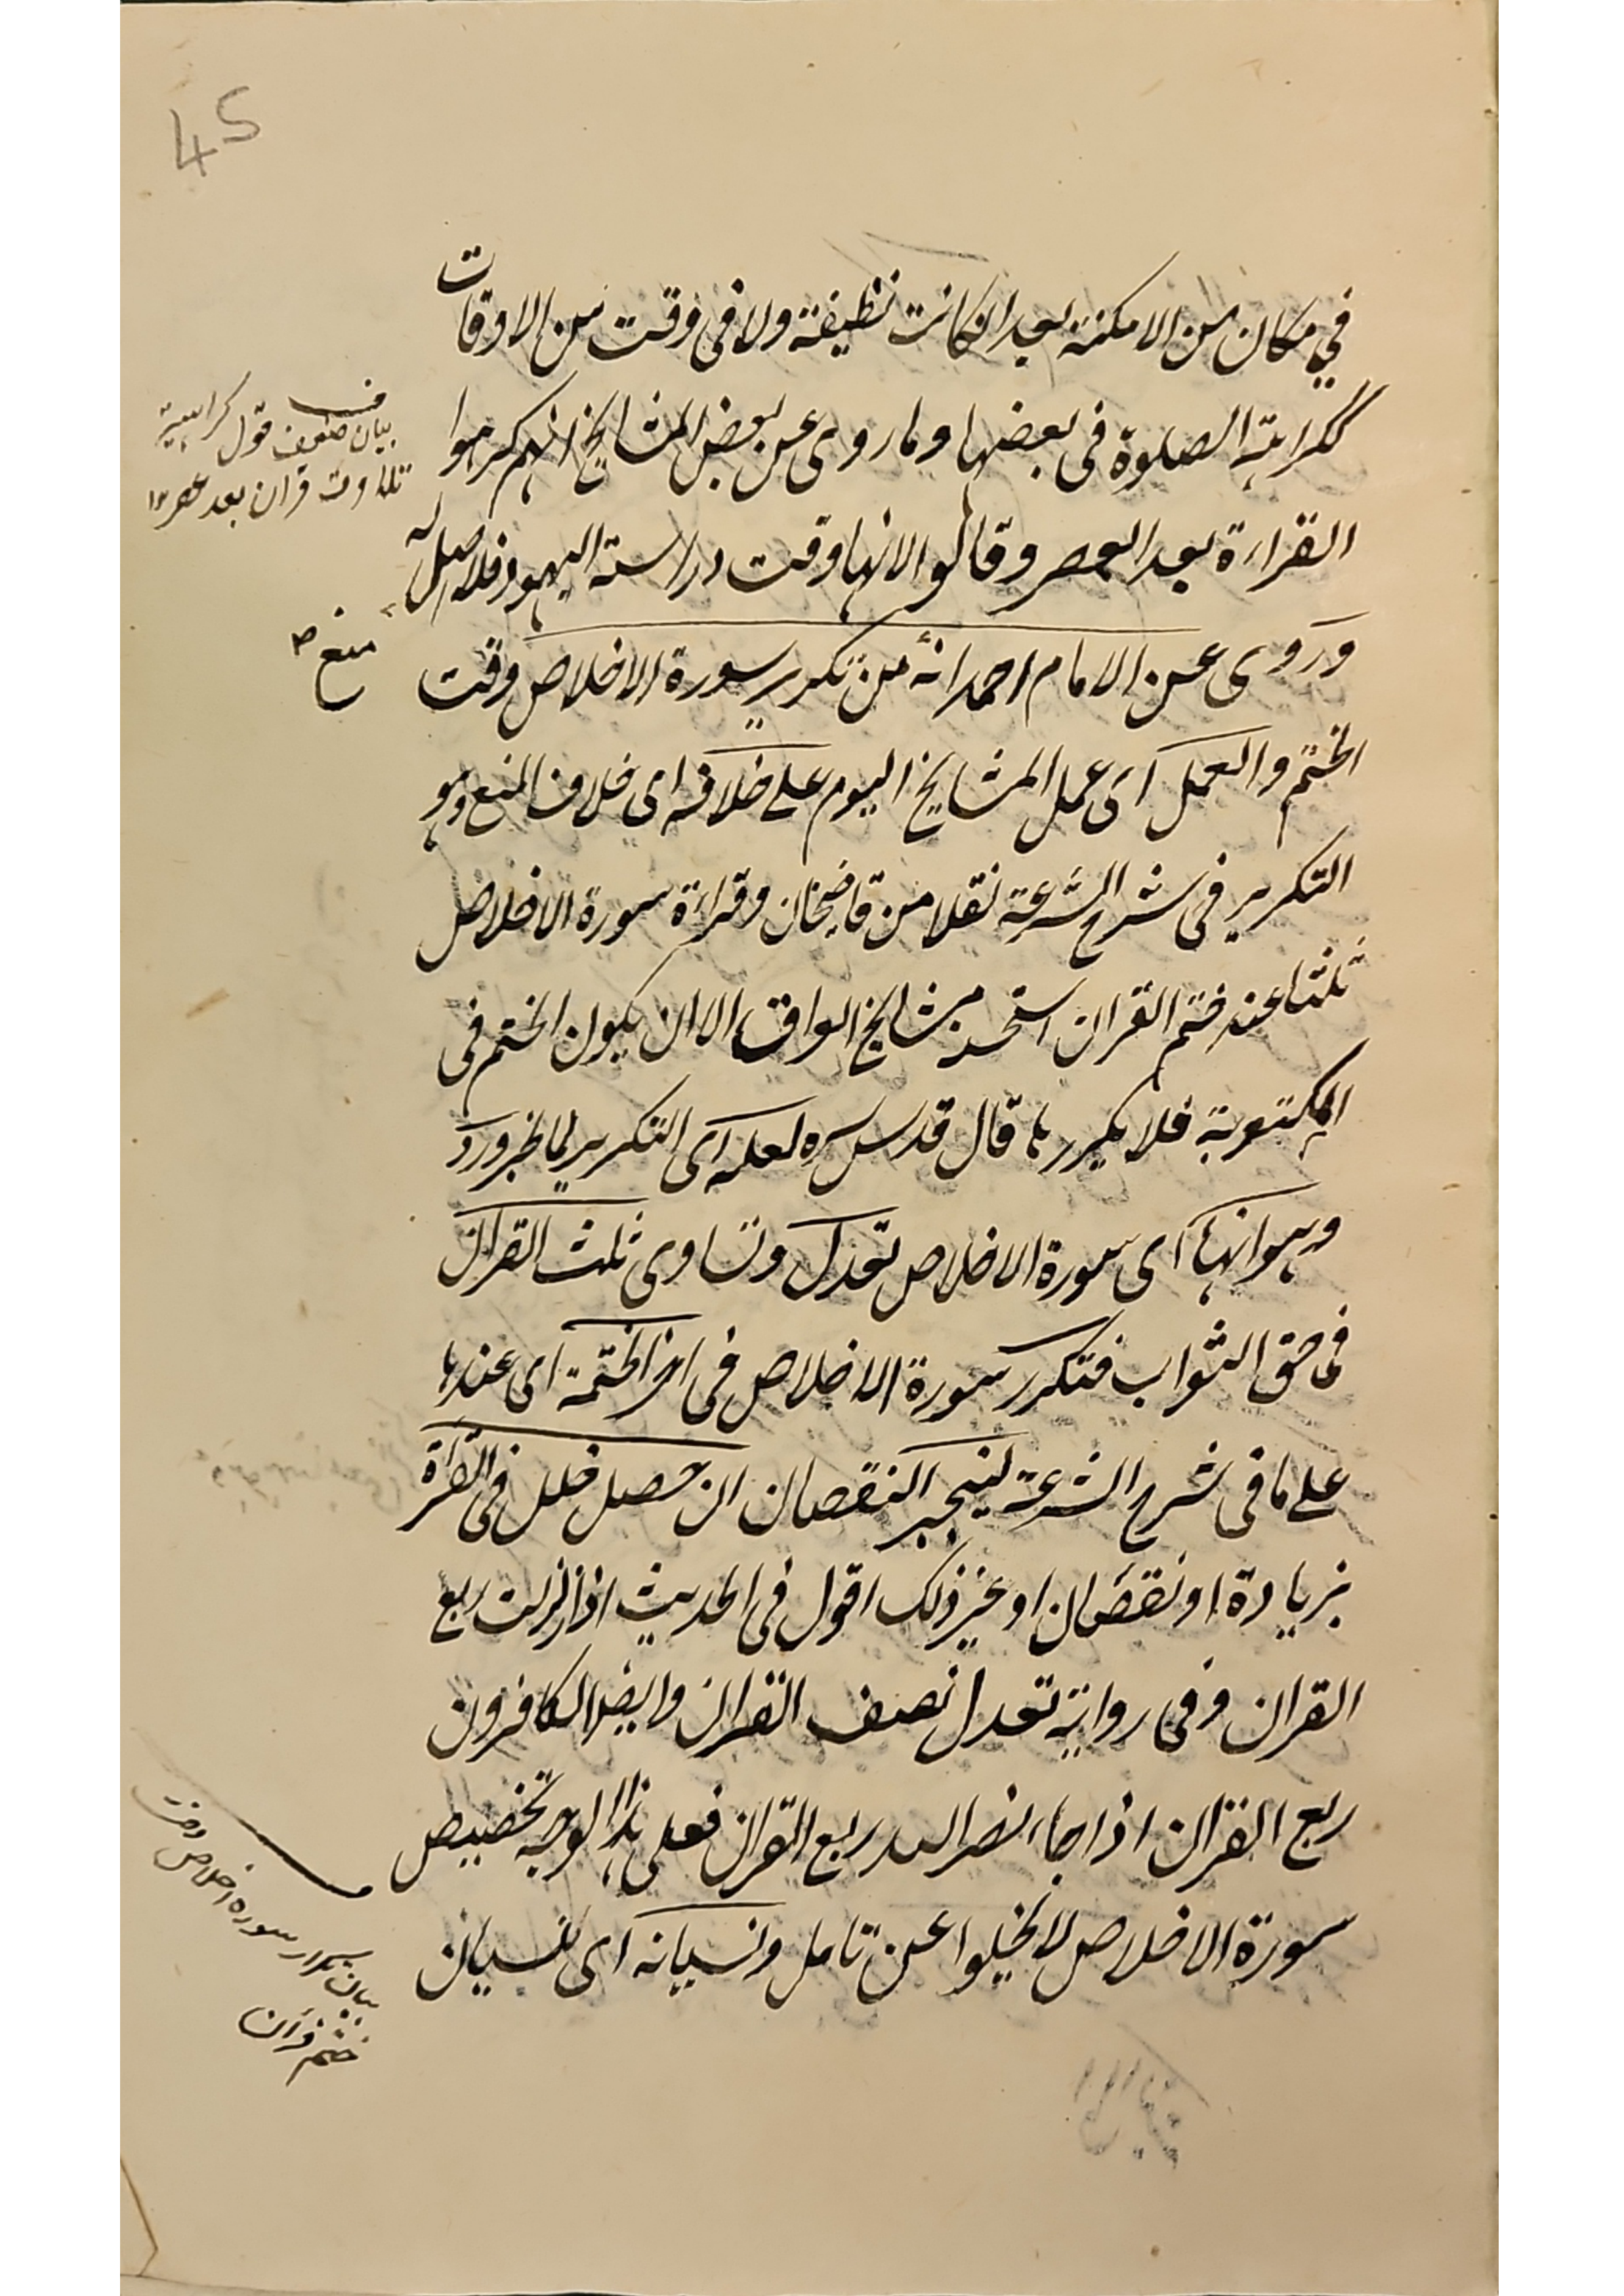 45
في مكان من الامكنة بعد ان كانت نظيفة ولا فى وقت من الاوقات
ككراهة الصلوة فى بعضها وما روى عن بعض المشايخ انهم كرهوا
القراءة بعد العصر وقالوا لانها وقت دراسة اليهود فلا اصل له
وروى عن الامام احمد انه من تكرير سورة الاخلاص وقت
الختم والعمل اى عمل المشايخ اليوم على خلافه اى خلاف المنع وهو
التكرير فى شرح الشرعة نقلا من قاضيخان وقراءة سورة الاخلاص
ثلثا عند ختم القران استحسنه مشايخ العراق الا ان يكون الختم فى
المكتوبة فلا يكررها قال قدس سره لعله اى التكرير لما لخبر ورد
وهو انها اى سورة الاخلاص تعدل وتساوى ثلث القران
فى حق الثواب فتكرر سورة الاخلاص فى اخر الختمة اى عندها
على ما فى شرح الشرعة لينجبر النقصان ان حصل خلل فى القراءة
بزيادة او نقصان او غير ذلك اقول فى الحديث اذا زلزلت ربع
القران وفى رواية تعدل نصف القران وايضا الكافرون
ربع القران اذا جاء نصر الله ربع القران فعلى هذا الوجه تخصيص
سورة الاخلاص لا يخلوا عن تامل ونسيانه اى نسيان
بيان ضعف قول كراهية
تلاوت قران بعد عصر
منع
بيان تكرار سوره اخلاص وقت
ختم قرآن